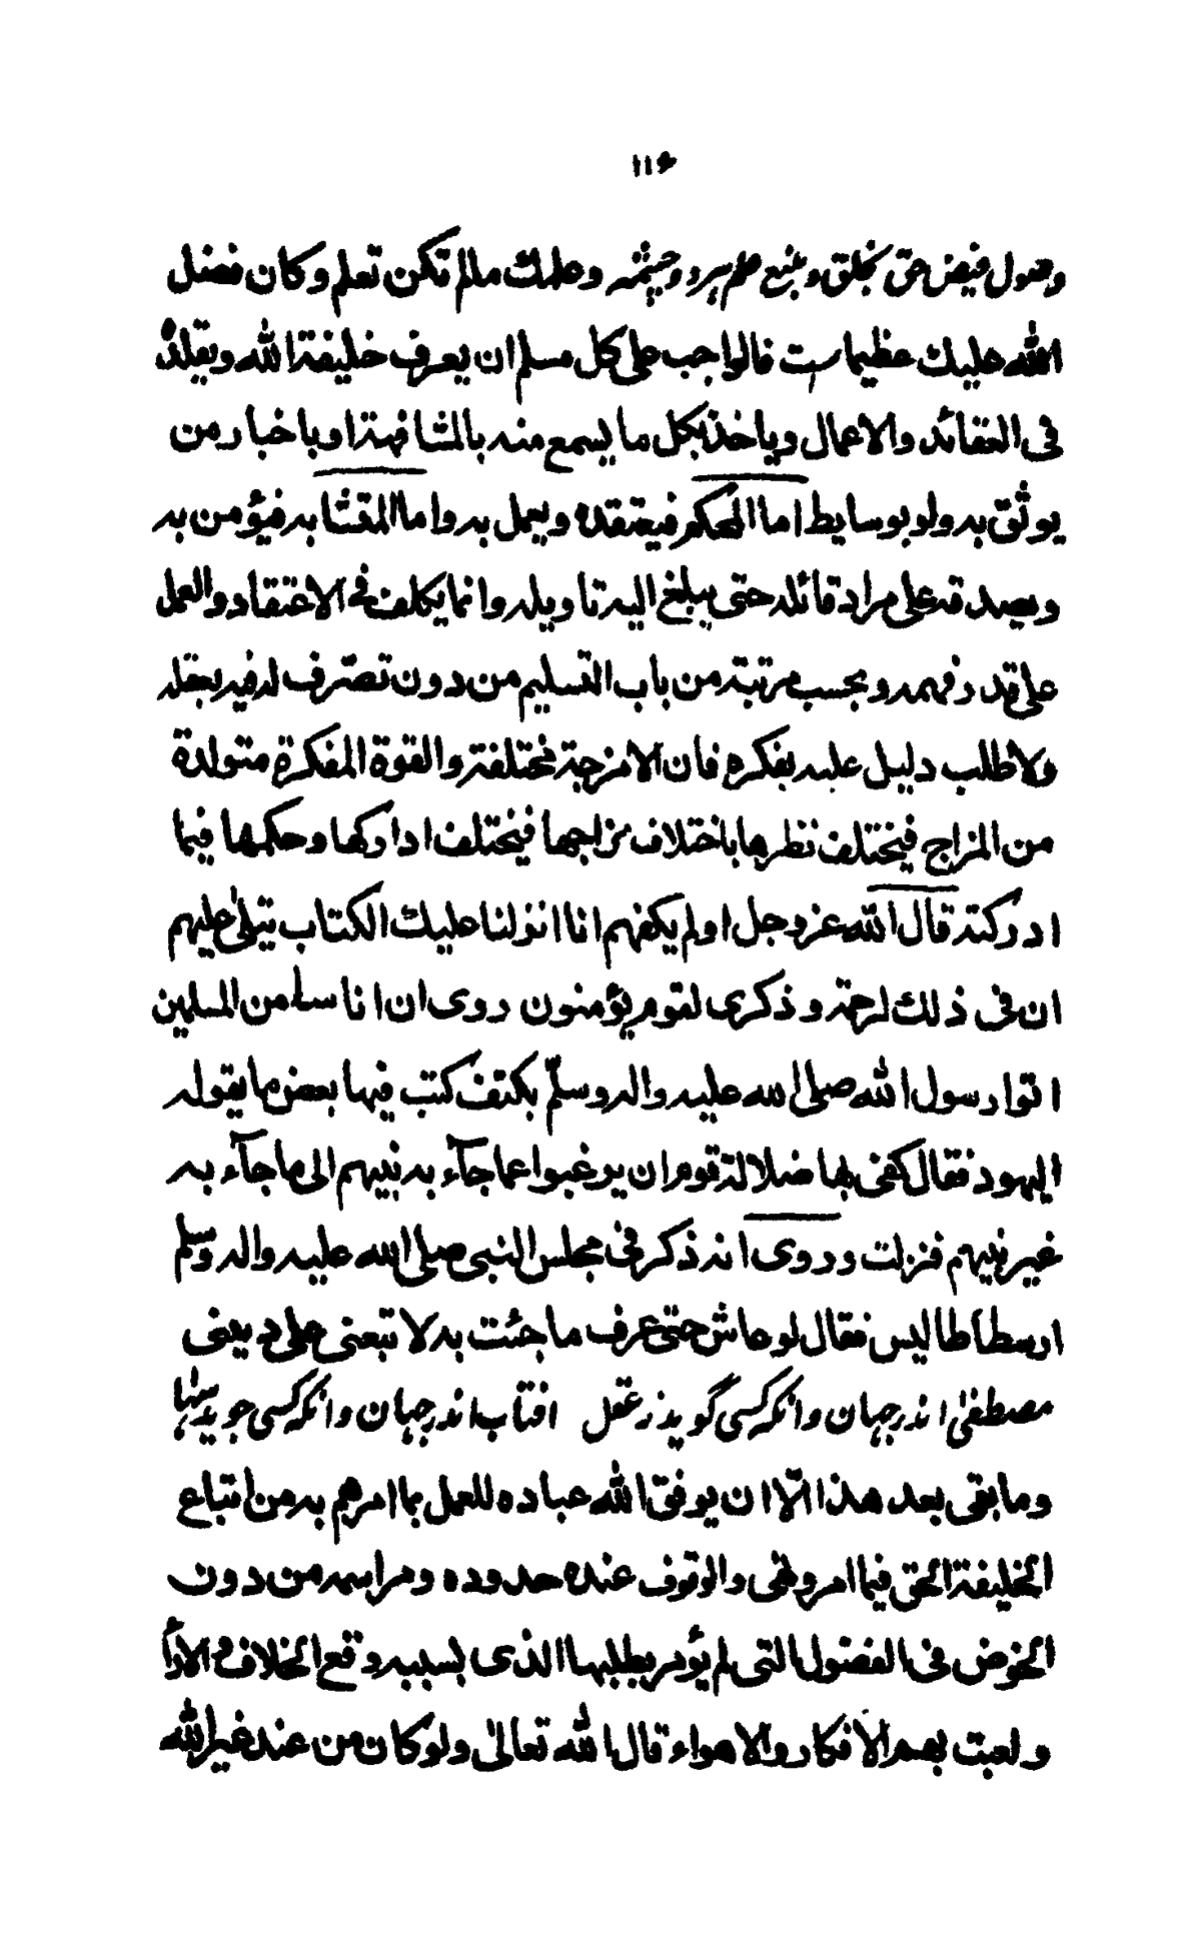 ۱۱۶
وصول فیض حق بخلق و منبع علم پیرو و چشمه وعلمك مالم تكن تعلم وكان فضل
الله عليك عظيما است فالواجب على كل مسلم ان يعرف خليفة الله ويقلده
فى العقائد والاعمال وياخذ بكل ما يسمع منه بالمشافهة او باخبار من
يوثق به ولو بوسايط اما المحكم فيعتقده ويعمل به واما المتشابه فيؤمن به
ويصدقه على مراد قائله حتى يبلغ اليه تاويله وانما يكلف فى الاعتقاد والعمل
على قدر فهمه وبحسب مرتبته من باب التسليم من دون تصرف له فيه بعقله
ولا طلب دليل عليه بفكره فان الامزجة مختلفة والقوة المفكرة متولدة
من المزاج فيختلف نظرها باختلاف مزاجها فيختلف ادراكها وحكمها فيما
ادركته قال الله عز وجل اولم يكفهم انا انزلنا عليك الكتاب يتلى عليهم
ان فى ذلك لرحمة وذكرى لقوم يؤمنون روى ان اناسا من المسلمين
اتوا رسول الله صلى الله عليه واله وسلّم بكتف كتب فيها بعض ما يقوله
اليهود فقال كفى بها ضلالة قوم ان يرغبوا عما جآء به نبيهم الى ما جآء به
غير نبيهم فنزلت وروى انه ذكر فى مجلس النبى صلى الله عليه واله وسلم
ارسطاطاليس فقال لو عاش حتى عرف ما جئت به لا تبعنى على دينى
مصطفیٰ اندر جهان وانگه کسی گوید ز عقل افتاب اندر جهان وانگه کسی جوید سها
وما بقى بعد هذا الّا ان يوفق الله عباده للعمل بما امرهم به من اتباع
الخليفة الحق فيما امر ونهى والوقوف عنده حدوده ومراسمه من دون
الخوض فى الفضول التى لم يؤمر بطلبها الذى بسببه وقع الخلاف فى الارآ
ولعبت بهم الافكار والاهواء قال الله تعالىٰ ولو كان من عند غير الله